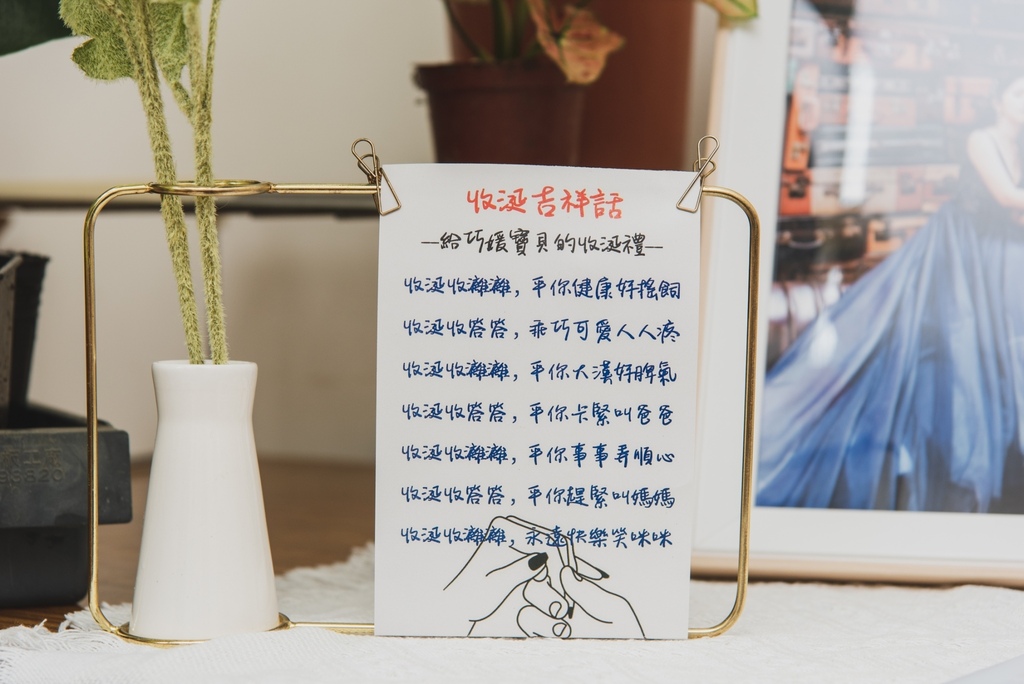 收涎吉祥話
—給巧媛寶貝的收涎禮—
收涎收離離，乎你健康好搖飼
收涎收答答，乖巧可愛人人疼
收涎收離離，乎你大漢好脾氣
收涎收答答，乎你卡緊叫爸爸
收涎收離離，乎你事事弄順心
收涎收答答，乎你趕緊叫媽媽
收涎收離離，永遠快樂笑咪咪